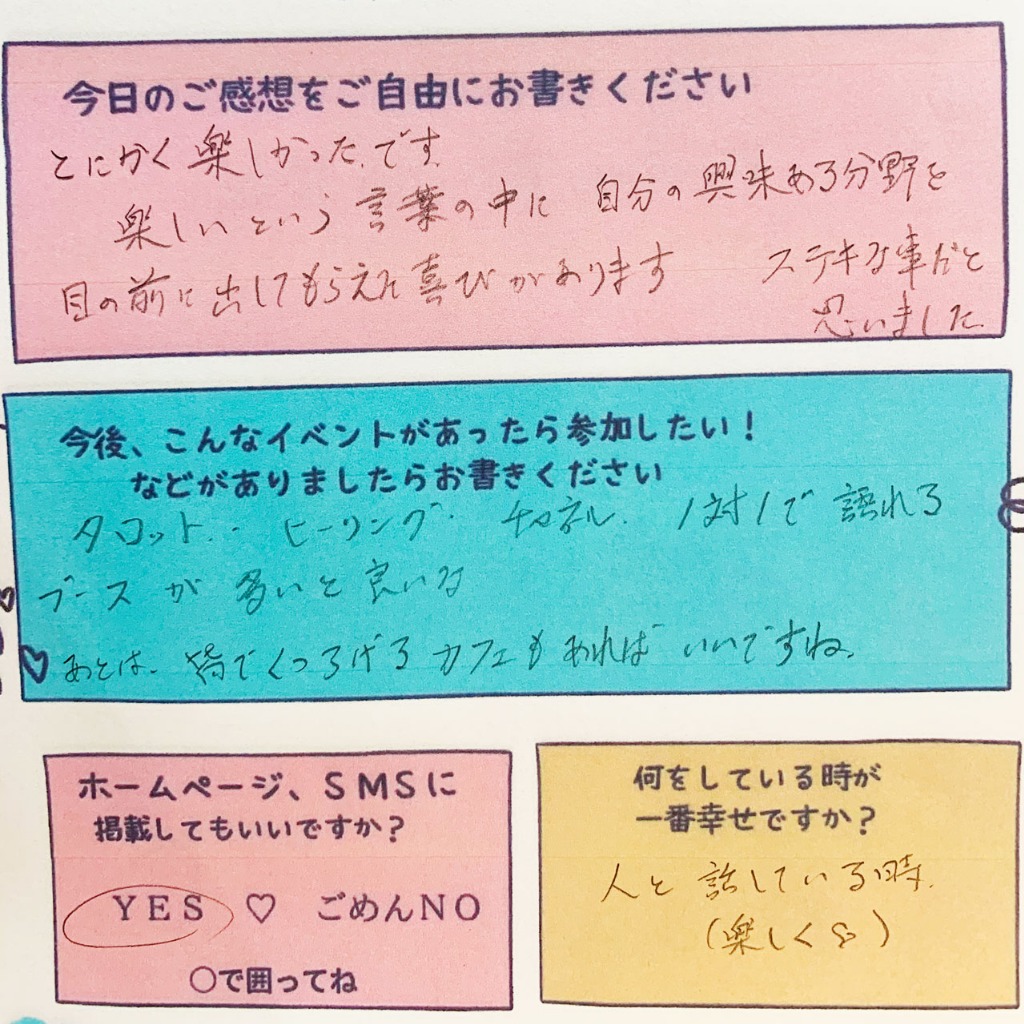 今日のご感想をご自由にお書きください
とにかく楽しかった.です.
楽しいという言葉の中に 自分の興味ある分野を
目の前に出してもらえた喜びがあります ステキな事だと
思いました.
今後、こんなイベントがあったら参加したい！
などがありましたらお書きください
タロット.・ヒーリング・チャネル. 1対1で語れる
ブースが多いと良いな
あとは、皆でくつろげるカフェもあればいいですね.
ホームページ、ＳＭＳに
掲載してもいいですか？
ＹＥＳ ♡ ごめんＮＯ
〇で囲ってね
何をしている時が
一番幸せですか？
人と話している時.
(楽しく)